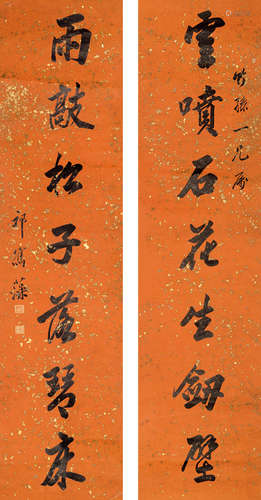 竹孫一兄屬
雲噴石花生劒壁
雨敲松子落琴床
祁寯藻